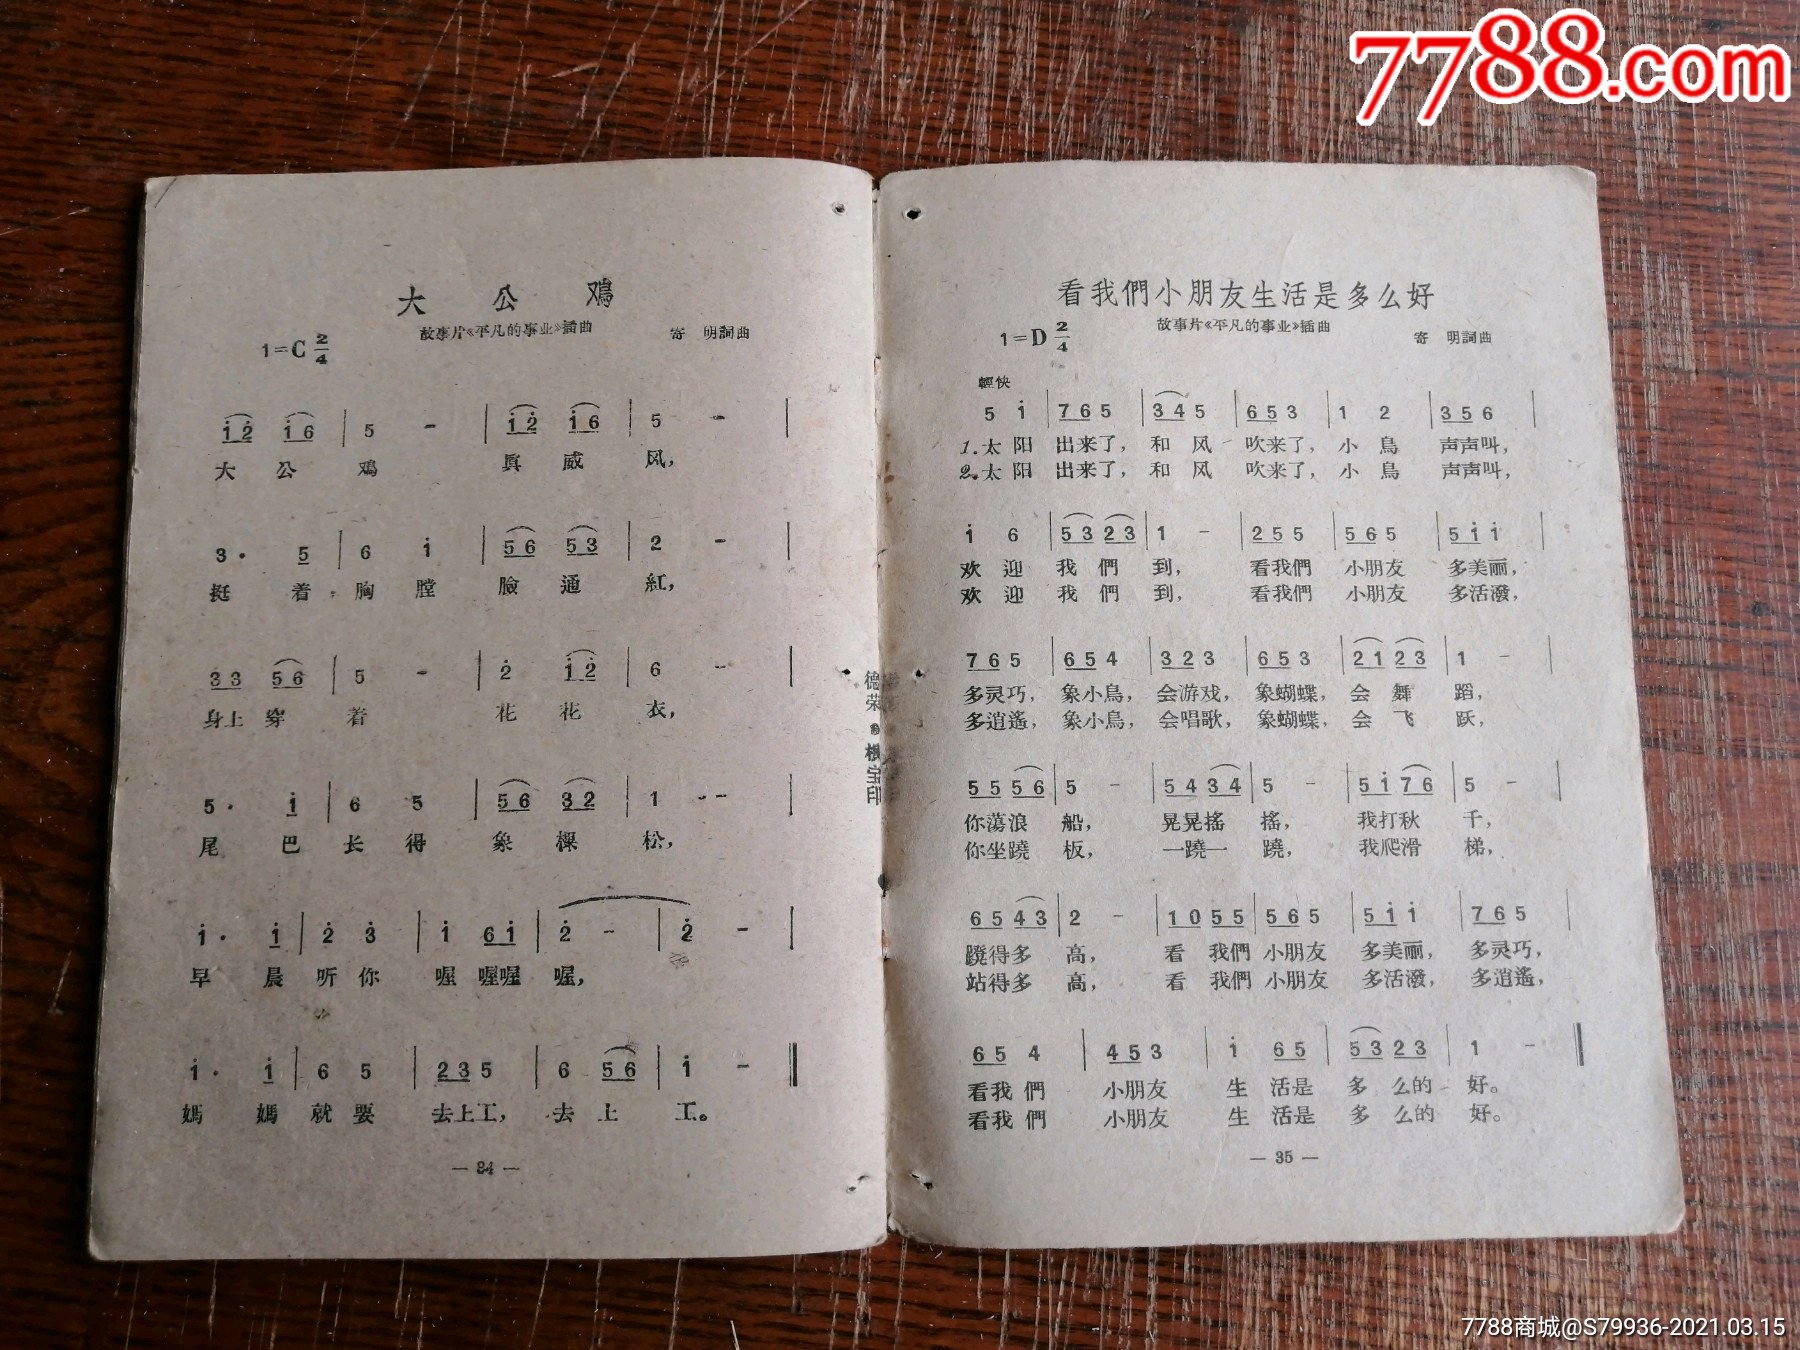 7788.com
大公鸡
故事片《平凡的事业》插曲
寄 明詞曲
1=C 2/4
1̇2̇ 1̇6 | 5 - | 1̇2̇ 1̇6 | 5 - |
大 公 鸡 真 威 风,
3· 5 | 6 1̇ | 56 53 | 2 - |
挺 着 胸 膛 臉 通 紅,
33 56 | 5 - | 2̇ 1̇2̇ | 6 - |
身上 穿 着 花 花 衣,
5· 1̇ | 6 5 | 56 32 | 1 - |
尾 巴 长 得 象 棵 松,
1̇· 1̇ | 2̇ 3̇ | 1̇ 61̇ | 2̇ - | 2̇ - |
早 晨 听 你 喔 喔喔 喔,
1̇· 1̇ | 6 5 | 235 | 6 56 | 1̇ - ‖
媽 媽 就 要 去上工, 去 上 工。
— 34 —
看我們小朋友生活是多么好
故事片《平凡的事业》插曲
寄 明詞曲
1=D 2/4
輕快
5 1̇ | 765 | 345 | 653 | 1 2 | 356 |
1.太 阳 出来了, 和 风 吹来了, 小 鳥 声声叫,
2.太 阳 出来了, 和 风 吹来了, 小 鳥 声声叫,
1̇ 6 | 53 23 | 1 - | 255 | 565 | 51̇1̇ |
欢 迎 我 們 到, 看我們 小朋友 多美丽,
欢 迎 我 們 到, 看我們 小朋友 多活潑,
765 | 654 | 323 | 653 | 21 23 | 1 - |
多灵巧, 象小鳥, 会游戏, 象蝴蝶, 会 舞 蹈,
多逍遙, 象小鳥, 会唱歌, 象蝴蝶, 会 飞 跃,
55 56 | 5 - | 54 34 | 5 - | 51̇ 76 | 5 - |
你蕩浪 船, 晃晃搖 搖, 我打秋 千,
你坐蹺 板, 一蹺一 蹺, 我爬滑 梯,
65 43 | 2 - | 10 55 | 565 | 51̇1̇ | 765 |
蹺得多 高, 看 我們 小朋友 多美丽, 多灵巧,
站得多 高, 看 我們 小朋友 多活潑, 多逍遙,
65 4 | 453 | 1̇ 65 | 53 23 | 1 - ‖
看我 們 小朋友 生 活是 多 么的 好。
看我 們 小朋友 生 活是 多 么的 好。
— 35 —
7788商城@S79936-2021.03.15